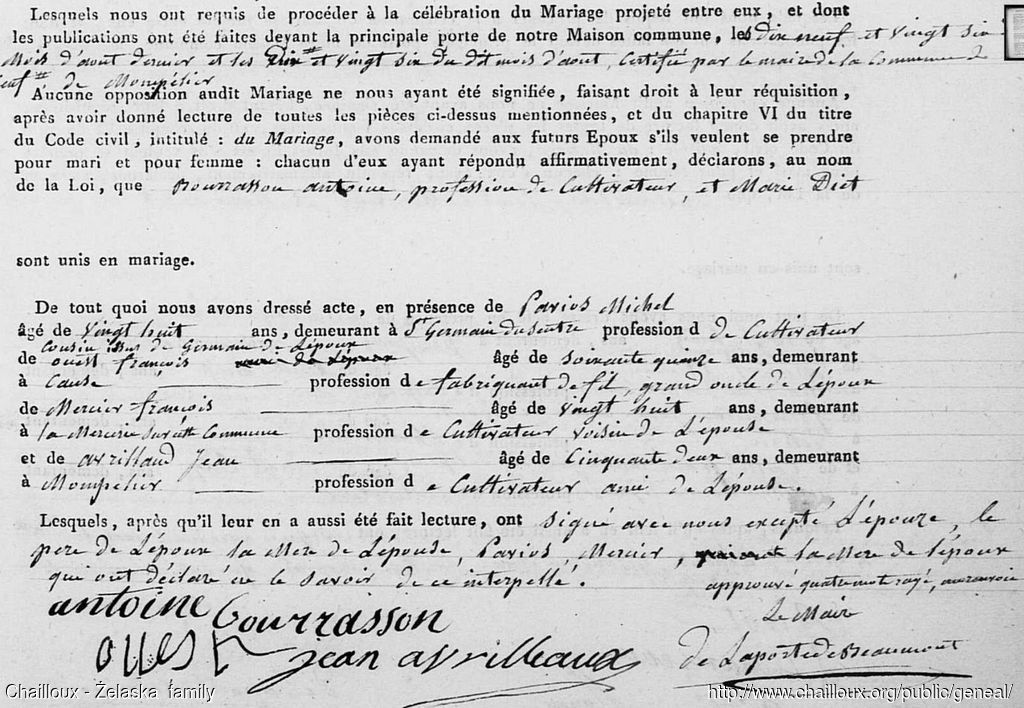 Lesquels nous ont requis de procéder à la célébration du Mariage projeté entre eux, et dont
les publications ont été faites devant la principale porte de notre Maison commune, les dix neuf et vingt six
Mois d'aout dernier et les Dix # et vingt six du dit mois d'aout, certifié par le maire de la Commune de
neuf # de Mompélier
Aucune opposition audit Mariage ne nous ayant été signifiée, faisant droit à leur réquisition,
après avoir donné lecture de toutes les pièces ci-dessus mentionnées, et du chapitre VI du titre
du Code civil, intitulé : du Mariage, avons demandé aux futurs Epoux s'ils veulent se prendre
pour mari et pour femme : chacun d'eux ayant répondu affirmativement, déclarons, au nom
de la Loi, que Bourrasson antoine, profession de Cultivateur, et Marie Diet
sont unis en mariage.
De tout quoi nous avons dressé acte, en présence de Parios Michel
âgé de vingt huit ans, demeurant à St Germain profession d de Cultivateur
Cousin issus de Germain de Lépoux
de ouest françois âgé de soixante quinze ans, demeurant
à Cause profession d e fabriquant de fil, grand oncle de Lépoux
de Mercier françois âgé de vingt huit ans, demeurant
à la Mercerie sur cette Commune profession d e Cultivateur voisin de Lépouse
et de avrillaud Jean âgé de Cinquante deux ans, demeurant
à Mompelier profession d e Cultivateur ami de Lépouse.
Lesquels, après qu'il leur en a aussi été fait lecture, ont signé avec nous excepté Lépouze, le
pere de Lépoux la Mere de Lépouse, Parios, Mercier, la Mere de lépoux
qui ont déclaré ne le savoir de ce interpellé. approuvé quatre mots rayé,
Le Mair
antoine bourrasson
ouest
jean avrilleaux
de Laporte de Beaumont
Chailloux - Żelaska family
http://www.chailloux.org/public/geneal/